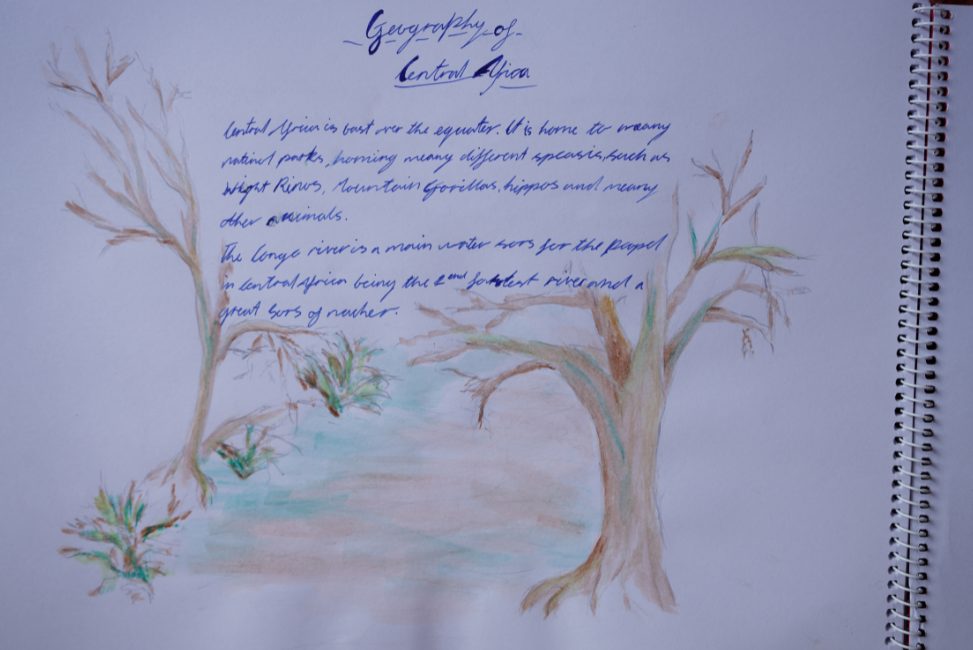 Geography of
Central Africa
Central Africa is bast over the equater. It is home to meany
natinal parks, homing meany different speasis, such as
Wight Rinos, Mountain Gorillas, hippos and meany
other animals.
The Congo river is a main water sors for the papel
in Central Africa being the 2end fastest river and a
great sors of nucher.